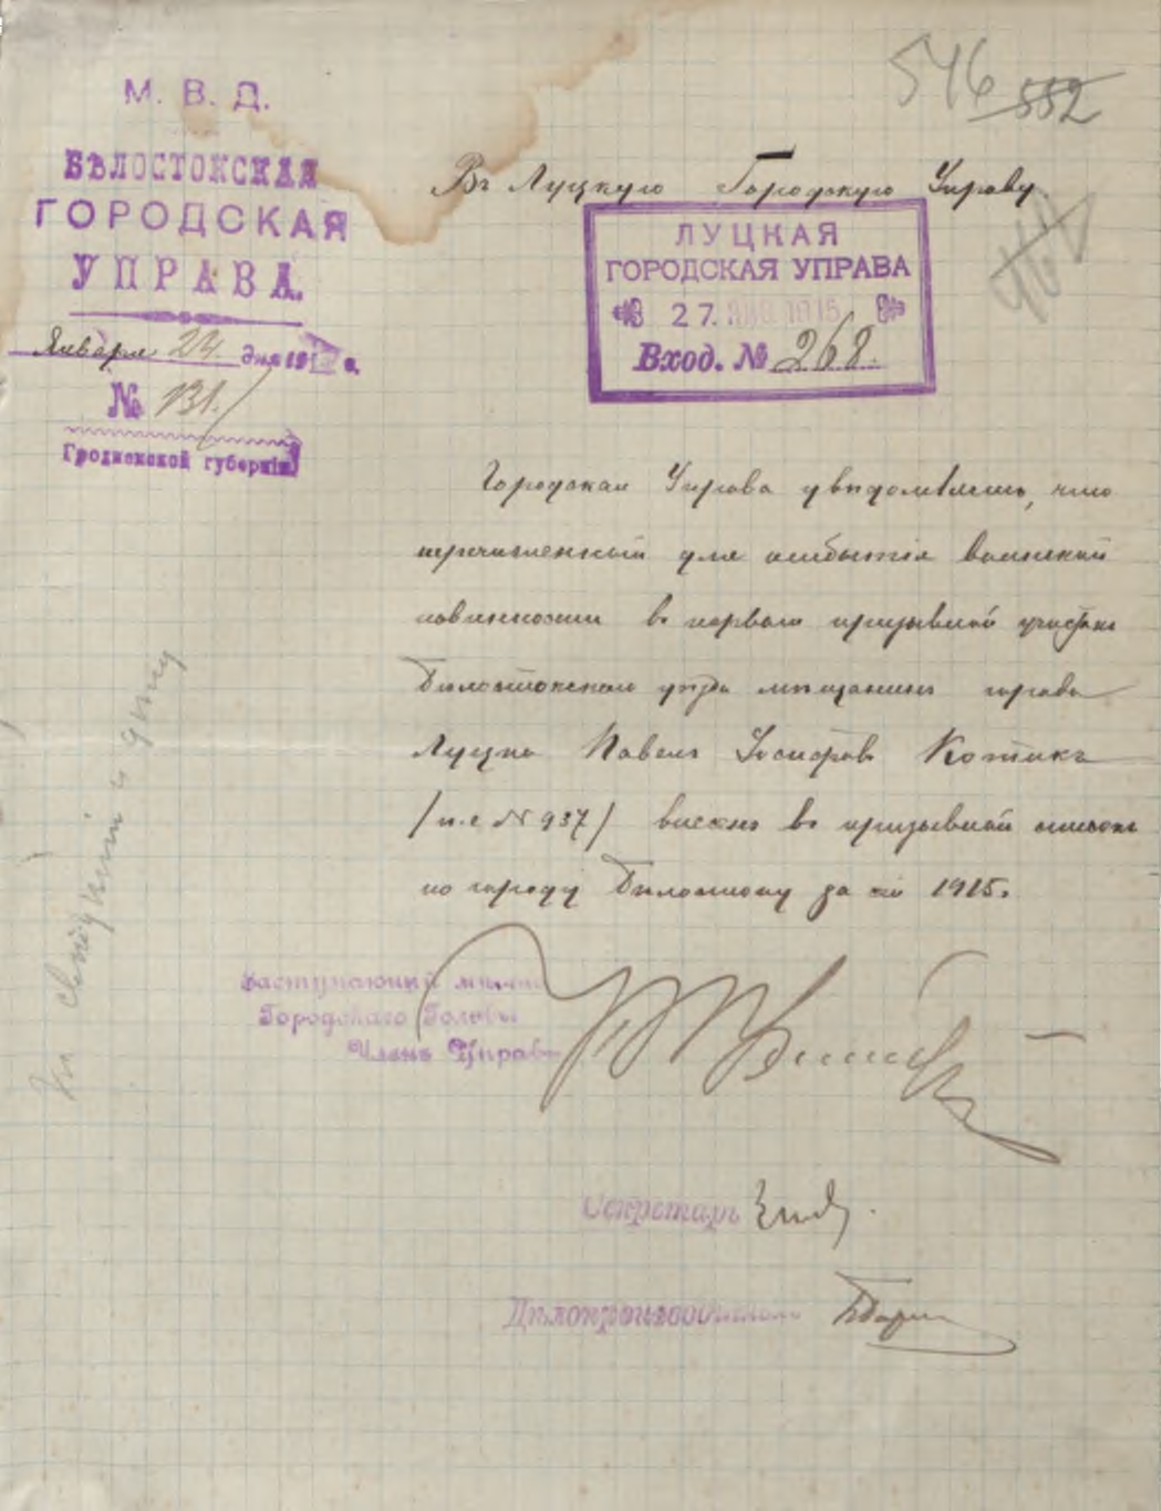 546 552
М. В. Д.
БѢЛОСТОКСКАЯ
ГОРОДСКАЯ
УПРАВА.
Января 24 дня 191 г.
№ 131.
Гродненской губерніи
Въ Луцкую Городскую Управу.
ЛУЦКАЯ
ГОРОДСКАЯ УПРАВА
27. ЯНВ. 1915
Вход. № 268.
Городская Управа увѣдомляетъ, что
перечисленный для отбытія воинской
повинности въ первый призывной участокъ
Бѣлостокскаго уѣзда мѣщанинъ города
Луцка Павелъ Іосифовъ Котикъ
/п.с № 937/ внесенъ въ призывной списокъ
по городу Бѣлостоку за 1915.
Заступающій мѣсто
Городского Головы
Членъ Управы
Секретарь
Дѣлопроизводитель